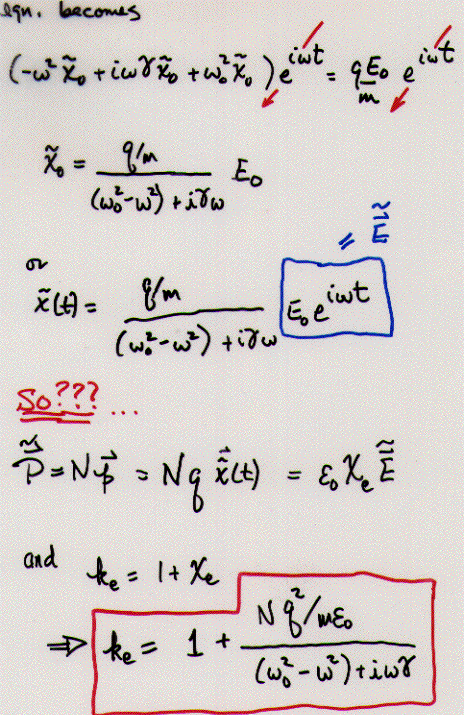 eqn. becomes
(-ω² x̃₀ + iωγ x̃₀ + ω₀² x̃₀) e^{iωt} = qE₀/m e^{iωt}
x̃₀ = (q/m) / ((ω₀² - ω²) + iγω) E₀
= Ẽ
or
x̃(t) = (q/m) / ((ω₀² - ω²) + iγω) E₀ e^{iωt}
So??? ...
P⃗̃ = N p⃗ = N q x⃗̃(t) = ε₀ χₑ E⃗̃
and kₑ = 1 + χₑ
⇒ kₑ = 1 + (Nq²/mε₀) / ((ω₀² - ω²) + iωγ)